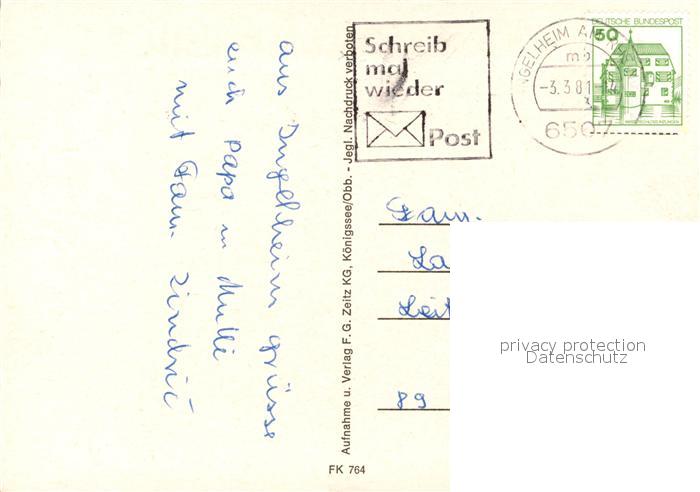 aus Ingelheim grüsse
euch papa u Mutti
mit Fam. Zindrić
Aufnahme u. Verlag F. G. Zeitz KG, Königssee/Obb. - Jegl. Nachdruck verboten
FK 764
Schreib
mal
wieder
Post
INGELHEIM AM
mb
-3.3.81
6507
DEUTSCHE BUNDESPOST
50
Fam.
La
Leit
89
privacy protection
Datenschutz